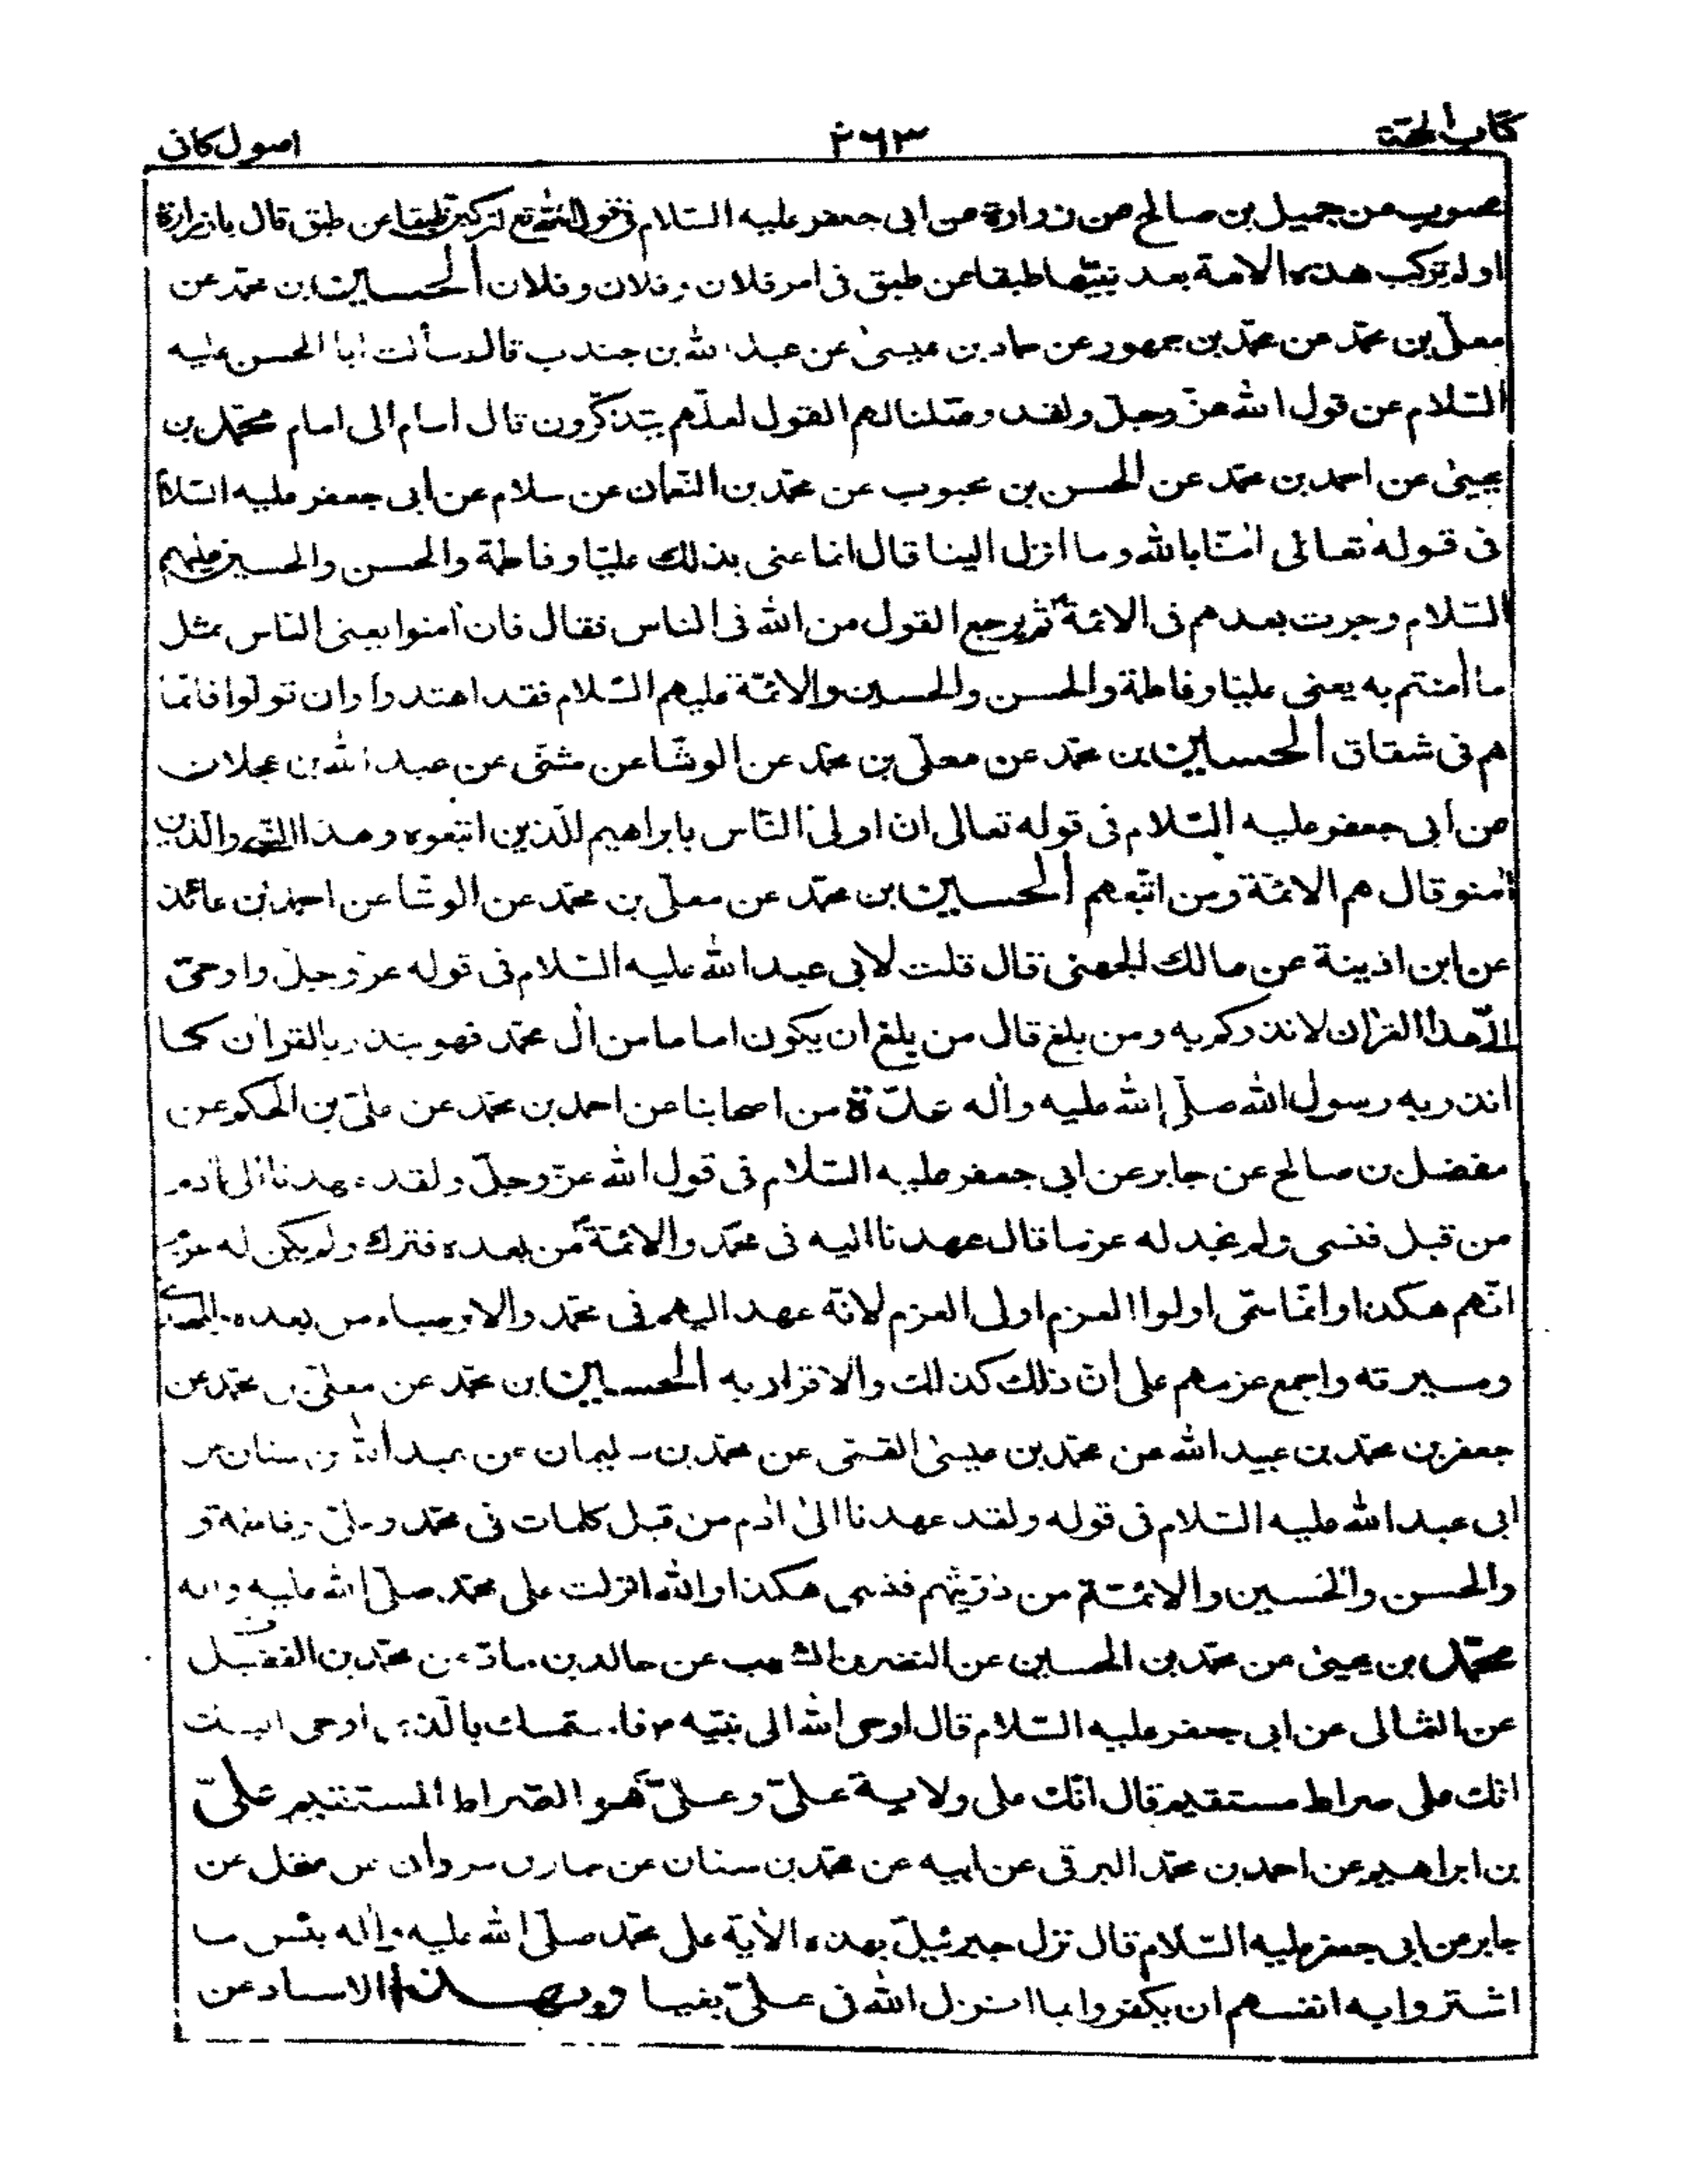 كتاب الحجة
٢٦٣
اصول كافى
محبوب عن جميل بن صالح عن زرارة عن ابى جعفر عليه السّلام فى قول الله تع لتركبنّ طبقا عن طبق قال يا زرارة
او لم تركب هذه الامة بعد نبيّها طبقا عن طبق فى امر فلان وفلان وفلان الحسين بن محمّد عن
معلّى بن محمّد عن محمّد بن جمهور عن حماد بن عيسىٰ عن عبد الله بن جندب قال سألت ابا الحسن عليه
السّلام عن قول الله عزّ وجلّ ولقد وصّلنا لهم القول لعلّهم يتذكّرون قال امام الى امام محمّد بن
يحيىٰ عن احمد بن محمّد عن الحسن بن محبوب عن محمّد بن النّعمان عن سلام عن ابى جعفر عليه السّلام
فى قوله تعالى اٰمنّا بالله وما انزل الينا قال انما عنى بذلك عليّا وفاطمة والحسن والحسين عليهم
السّلام وجرت بعدهم فى الائمّة ثم يرجع القول من الله فى الناس فقال فان اٰمنوا يعنى النّاس بمثل
ما اٰمنتم به يعنى عليّا وفاطمة والحسن والحسين والائمّة عليهم السّلام فقد اهتدوا وان تولّوا فانّما
هم فى شقاق الحسين بن محمّد عن معلّى بن محمّد عن الوشّا عن مثنّى عن عبد الله بن عجلان
عن ابى جعفر عليه السّلام فى قوله تعالى انّ اولى النّاس بابراهيم للّذين اتبعوه وهذا النّبى والّذين
اٰمنو قال هم الائمّة ومن اتّبعهم الحسين بن محمّد عن معلّى بن محمّد عن الوشّا عن احمد بن عائذ
عن ابن اذينة عن مالك الجهنى قال قلت لابى عبد الله عليه السّلام فى قوله عزّ وجلّ واوحى
الىّ هذا القراٰن لانذركم به ومن بلغ قال من بلغ ان يكون اماما من اٰل محمّد فهو ينذر بالقراٰن كما
انذر به رسول الله صلّى الله عليه واٰله عدّة من اصحابنا عن احمد بن محمّد عن علىّ بن الحكم عن
مفضل بن صالح عن جابر عن ابى جعفر عليه السّلام فى قول الله عزّ وجلّ ولقد عهدنا الى اٰدم
من قبل فنسى ولم نجد له عزما قال عهدنا اليه فى محمّد والائمّة من بعده فترك ولم يكن له عزم
انّهم هكذا وانّما سمّى اولوا العزم اولى العزم لانّه عهد اليهم فى محمّد والاوصياء من بعده والمهدى
وسيرته واجمع عزمهم على انّ ذلك كذلك والاقرار به الحسين بن محمّد عن معلّى بن محمّد عن
جعفر بن محمّد بن عبيد الله عن محمّد بن عيسىٰ القمّى عن محمّد بن سليمان عن عبد الله بن سنان عن
ابى عبد الله عليه السّلام فى قوله ولقد عهدنا الىٰ اٰدم من قبل كلمات فى محمّد وعلىّ وفاطمة و
والحسن والحسين والائمّة من ذرّيّتهم فنسى هكذا والله انزلت على محمّد صلّى الله عليه واٰله
محمّد بن يحيىٰ عن محمّد بن الحسين عن النضر بن شعيب عن خالد بن مادّ عن محمّد بن الفضيل
عن الثمالى عن ابى جعفر عليه السّلام قال اوحى الله الى نبيّه م فاستمسك بالّذى اوحى اليك
انّك على صراط مستقيم قال انّك على ولاية علىّ وعلىّ هو الصّراط المستقيم علىّ
بن ابراهيم عن احمد بن محمّد البرقى عن ابيه عن محمّد بن سنان عن عمار بن مروان عن منخل عن
جابر عن ابى جعفر عليه السّلام قال نزل جبرئيل بهذه الاٰية على محمّد صلّى الله عليه واٰله بئس ما
اشتروا به انفسهم ان يكفروا بما انزل الله فى علىّ بغيا وبهذا الاسناد عن